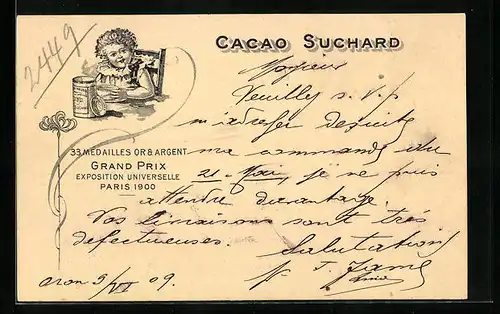 2449
CACAO SUCHARD
Monsieur
Veuillez s.v.p
m'adresser de suite
33 MEDAILLES OR & ARGENT
GRAND PRIX
EXPOSITION UNIVERSELLE
PARIS 1900
ma commande du
21 Mai, je ne puis
attendre davantage.
Vos livraisons sont très
defectueuses.
Salutations
09.